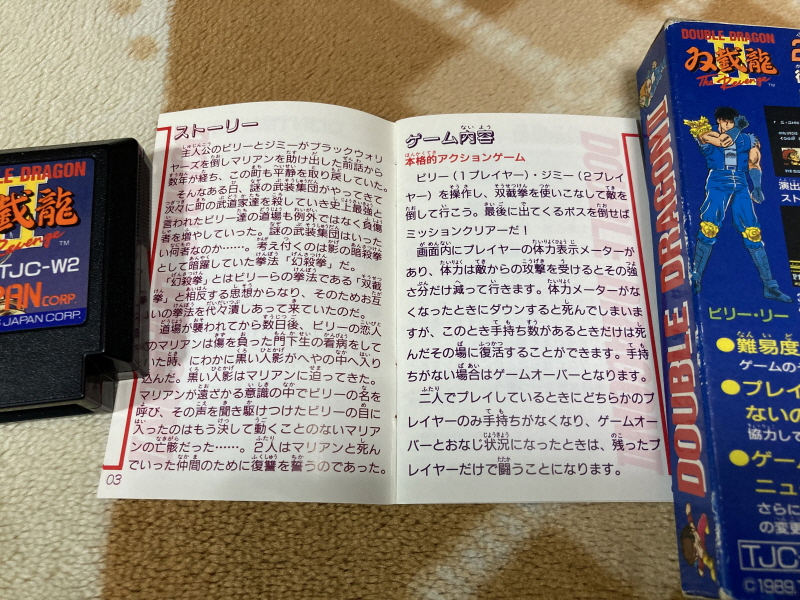 DOUBLE DRAGON
双截龍
The Revenge
TM
TJC-W2
JAPAN CORP.
S JAPAN CORP.
ストーリー
主人公のビリーとジミーがブラックウォリ
ヤーズを倒しマリアンを助け出した前話から
数年が経ち、この町も平静を取り戻していた。
そんなある日、謎の武装集団がやってきて
次々に町の武道家達を殺していき史上最強と
言われたビリー達の道場も例外ではなく負傷
者を増やしていった。謎の武装集団はいった
い何者なのか……。考え付くのは影の暗殺拳
として暗躍していた拳法「幻殺拳」だ。
「幻殺拳」とはビリーらの拳法である「双截
拳」と相反する思想からなり、そのためお互
いの拳法を代々潰しあって来ていたのだ。
道場が襲われてから数日後、ビリーの恋人
のマリアンは傷を負った門下生の看病をして
いた時、にわかに黒い人影がへやの中へ入り
込んだ。黒い人影はマリアンに迫ってきた。
マリアンが遠ざかる意識の中でビリーの名を
呼び、その声を聞き駆けつけたビリーの目に
入ったのはもう決して動くことのないマリア
ンの亡骸だった……。2人はマリアンと死ん
でいった仲間のために復讐を誓うのであった。
03
ゲーム内容
本格的アクションゲーム
ビリー(1プレイヤー)・ジミー(2プレイ
ヤー)を操作し、双截拳を使いこなして敵を
倒して行こう。最後に出てくるボスを倒せば
ミッションクリアーだ!
画面内にプレイヤーの体力表示メーターが
あり、体力は敵からの攻撃を受けるとその強
さ分だけ減って行きます。体力メーターがな
くなったときにダウンすると死んでしまいま
すが、このとき手持ち数があるときだけは死
んだその場に復活することができます。手持
ちがない場合はゲームオーバーとなります。
二人でプレイしているときにどちらかのプ
レイヤーのみ手持ちがなくなり、ゲームオー
バーとおなじ状況になったときは、残ったプ
レイヤーだけで闘うことになります。
DOUBLE DRAGON
双截龍
II
The Revenge
TM
DOUBLE DRAGON II
演出
スト
ビリー・リー
●難易度
ゲームの
●プレイ
ないの
協力して
●ゲーム
ニュー
さらに
の変更
TJC
©1989